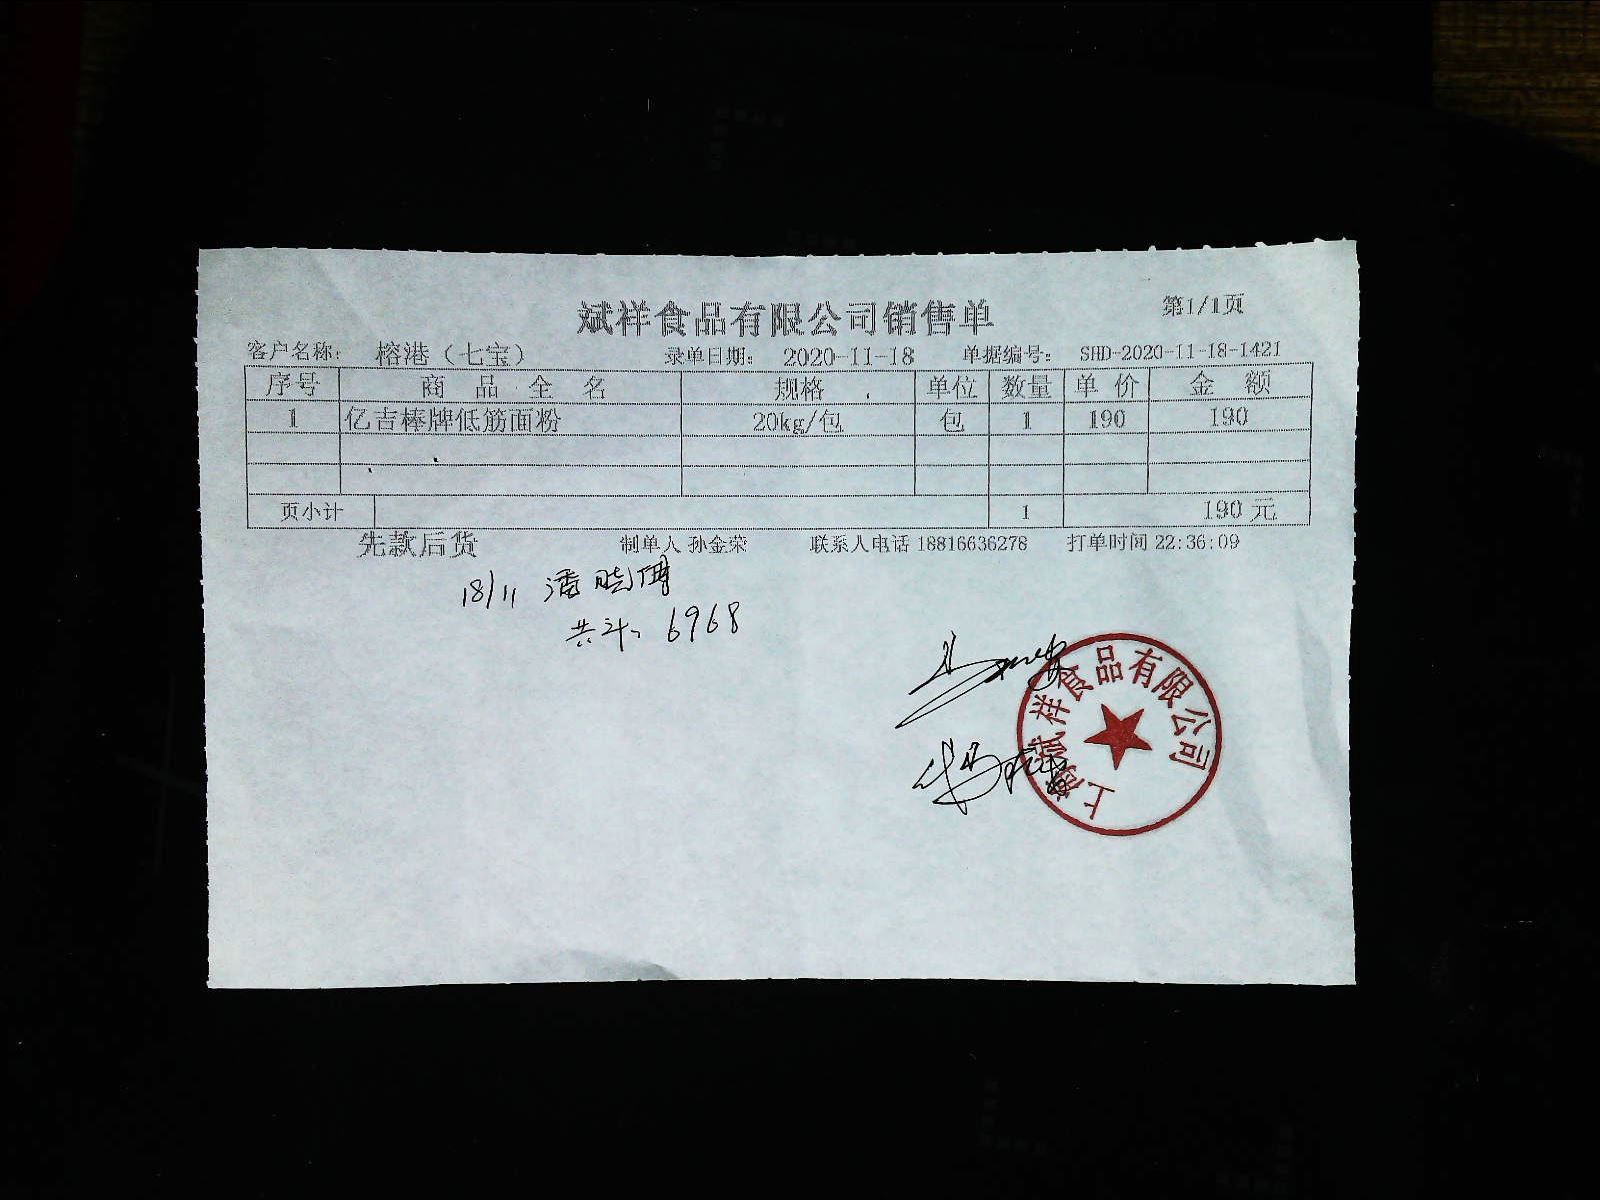 斌祥食品有限公司销售单
第1/1页
客户名称： 榕港（七宝） 录单日期： 2020-11-18 单据编号： SHD-2020-11-18-1421
序号 商品全名 规格 单位 数量 单价 金额
1 亿吉棒牌低筋面粉 20kg/包 包 1 190 190
页小计 1 190 元
先款后货 制单人 孙金荣 联系人电话 18816636278 打单时间 22:36:09
18/11 潘晓
6968
上海斌祥食品有限公司